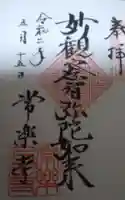 奉拝
妙観察智弥陀如来
常楽寺
令和二年
五月十五日